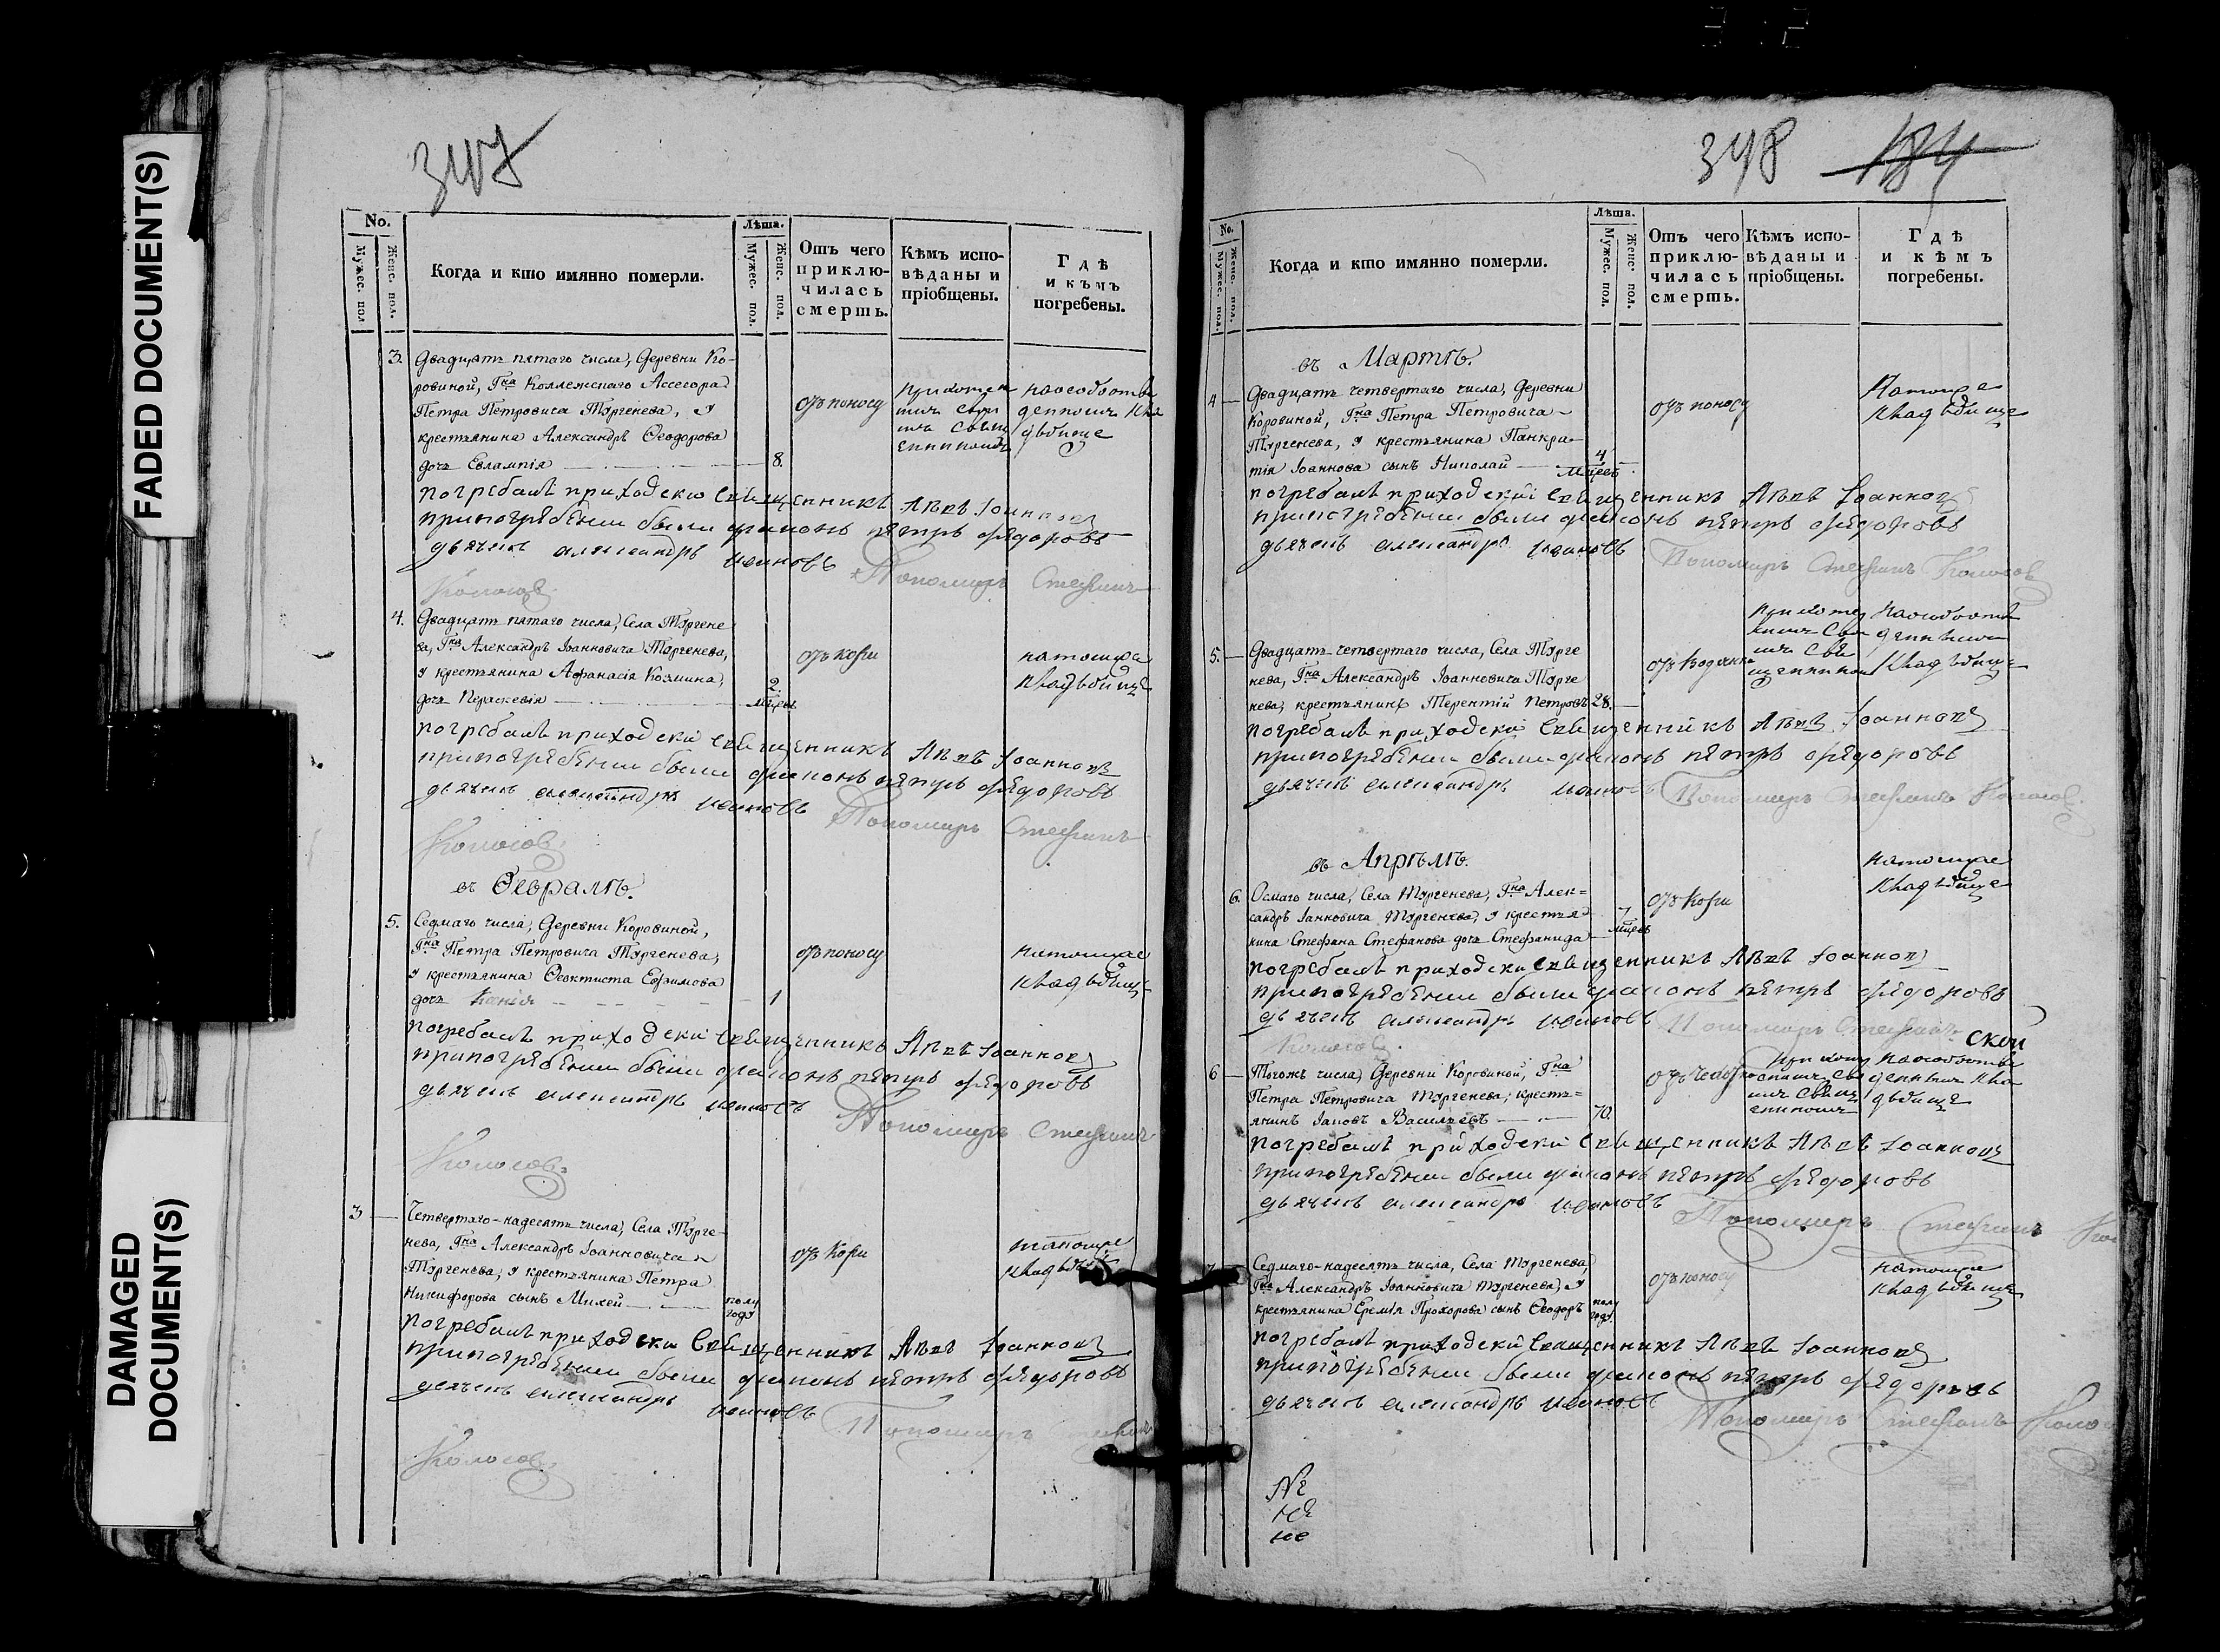 FADED DOCUMENT(S)
DAMAGED
DOCUMENT(S)
347
No.
Мужес. пол
Женс. пол.
Когда и кто имянно померли.
Лѣта.
Мужес. пол.
Женс. пол.
Отъ чего
приклю-
чилась
смерть.
Кѣмъ испо-
вѣданы и
пріобщены.
Гдѣ
и кѣмъ
погребены.
3. Двадцать пятаго числа, Деревни Ко-
ровиной, Гна Коллежскаго Ассесора
Петра Петровича Тургенева, у
крестьянина Александръ Ѳеодорова
дочь Евлампія 8.
отъ поносу
погребалъ приходски Священникъ Левъ Іоанновъ
припогребении были диаконъ петръ федоровъ
дьячекъ александръ ивановъ Пономарь Стефанъ
Колосовъ
4. Двадцать пятаго числа, Села Тургене
ва, Гна Александръ Іоанновича Тургенева,
у крестьянина Аѳанасія Козмина,
дочь Пераскевія 2. мцов.
отъ кори
натомже
кладбище
погребалъ приходски Священникъ Левъ Іоанновъ
припогребении были диаконъ петръ федоровъ
дьячекъ александръ ивановъ Пономарь Стефанъ
Колосовъ
въ Ѳевралѣ.
5. Седмаго числа, Деревни Коровиной,
Гна Петра Петровича Тургенева,
у крестьянина Ѳеоктиста Ефимова
дочь 1
отъ поносу
натомже
кладбище
погребалъ приходски Священникъ Левъ Іоанновъ
припогребении были диаконъ петръ федоровъ
дьячекъ александръ ивановъ Пономарь Стефанъ
Колосовъ
3 Четвертаго-надесять числа, Села Турге-
нева, Гна Александръ Іоанновича
Тургенева, у крестьянина Петра
Никифорова сынъ Михей полу года
отъ кори
натомже
кладбище
погребалъ приходски Священникъ Левъ Іоанновъ
припогребении были диаконъ петръ федоровъ
дьячекъ александръ ивановъ Пономарь
Колосовъ
348 184
No.
Мужес. пол.
Женс. пол.
Когда и кто имянно померли.
Лѣта.
Мужес. пол.
Женс. пол.
Отъ чего
приклю-
чилась
смерть.
Кѣмъ испо-
вѣданы и
пріобщены.
Гдѣ
и кѣмъ
погребены.
въ Мартѣ.
4 Двадцать четвертаго числа, Деревни
Коровиной, Гна Петра Петровича
Тургенева, у крестьянина Панкра-
тія Іоаннова сынъ Николай 4 мцовъ
отъ поносу
Натомже
кладбище
погребалъ приходскій Священникъ Левъ Іоанновъ
припогребении были диаконъ петръ федоровъ
дьячекъ александръ ивановъ Пономарь Стефанъ Колосовъ
5. Двадцать четвертаго числа, Села Турге
нева, Гна Александръ Іоанновича Турге
нева, крестьянинъ Терентій Петровъ 28.
кладбище
погребалъ приходски Священникъ Левъ Іоанновъ
припогребении были диаконъ петръ федоровъ
дьячекъ александръ ивановъ Пономарь Стефанъ Колосовъ
въ Апрѣлѣ.
6. Осмаго числа, Села Тургенева, Гна Алек=
сандръ Іанновича Тургенева, у крестья
нина Стефана Стефанова дочь Стефанида 7 мцовъ
отъ кори
натомже
кладбище
погребалъ приходски Священникъ Левъ Іоанновъ
припогребении были диаконъ петръ федоровъ
дьячекъ александръ ивановъ Пономарь Стефанъ
Колосовъ.
ской
6 Тогожъ числа, Деревни Коровиной, Гна
Петра Петровича Тургенева, кресть=
янинъ Іаковъ Васильевъ 70.
погребалъ приходски Священникъ Левъ Іоанновъ
припогребении были диаконъ петръ федоровъ
дьячекъ александръ ивановъ
Пономарь Стефанъ
Седмаго-надесять числа, Села Тургенева,
Гна Александръ Іоанновича Тургенева, у
крестьянина Еремія Прохорова сынъ Ѳеодоръ полу года
отъ поносу
натомже
кладбище
погребалъ приходскій Священникъ Левъ Іоанновъ
припогребении были диаконъ петръ федоровъ
дьячекъ александръ ивановъ
Пономарь Стефанъ